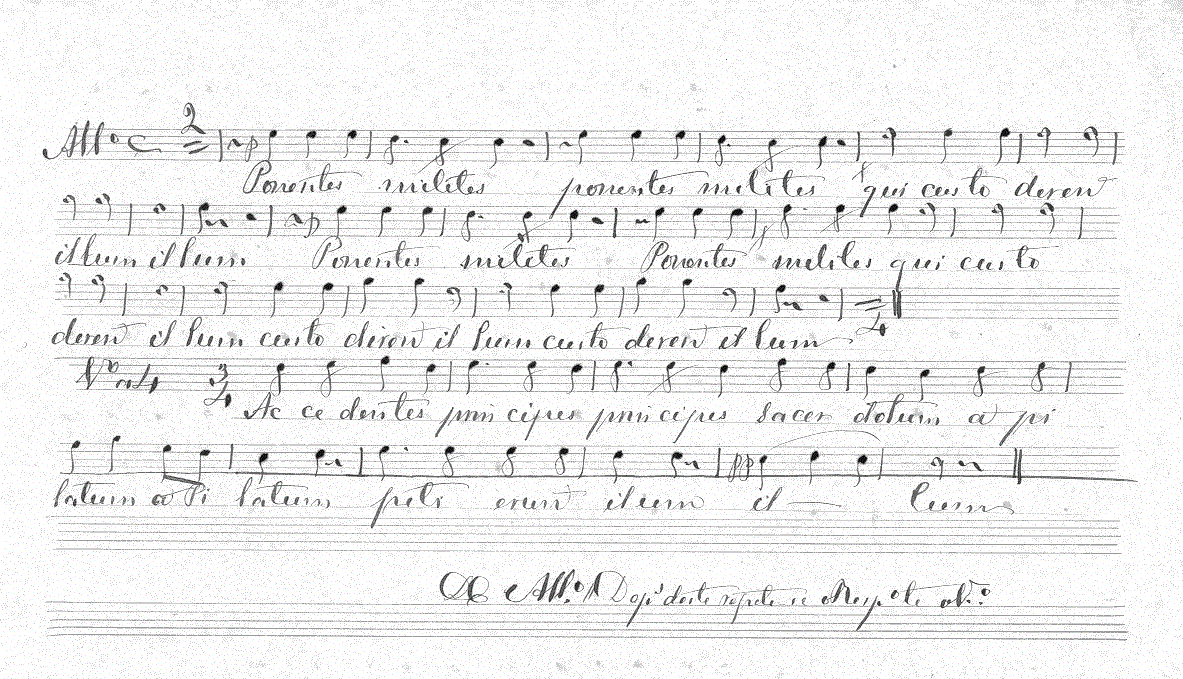 All.º C 2
Ponentes milites ponentes milites qui custo deren
illum illum Ponentes milites Ponentes milites qui custo
deren il lum custo diren il lum custo deren il lum 4
Vº 4 3 4 Ac ce dentes prin cipes prin cipes sacer dotum a pi
latum a Pi latum peti erunt ilum il lum
All.º Dopº deste repete se o Resp.º te o V.º